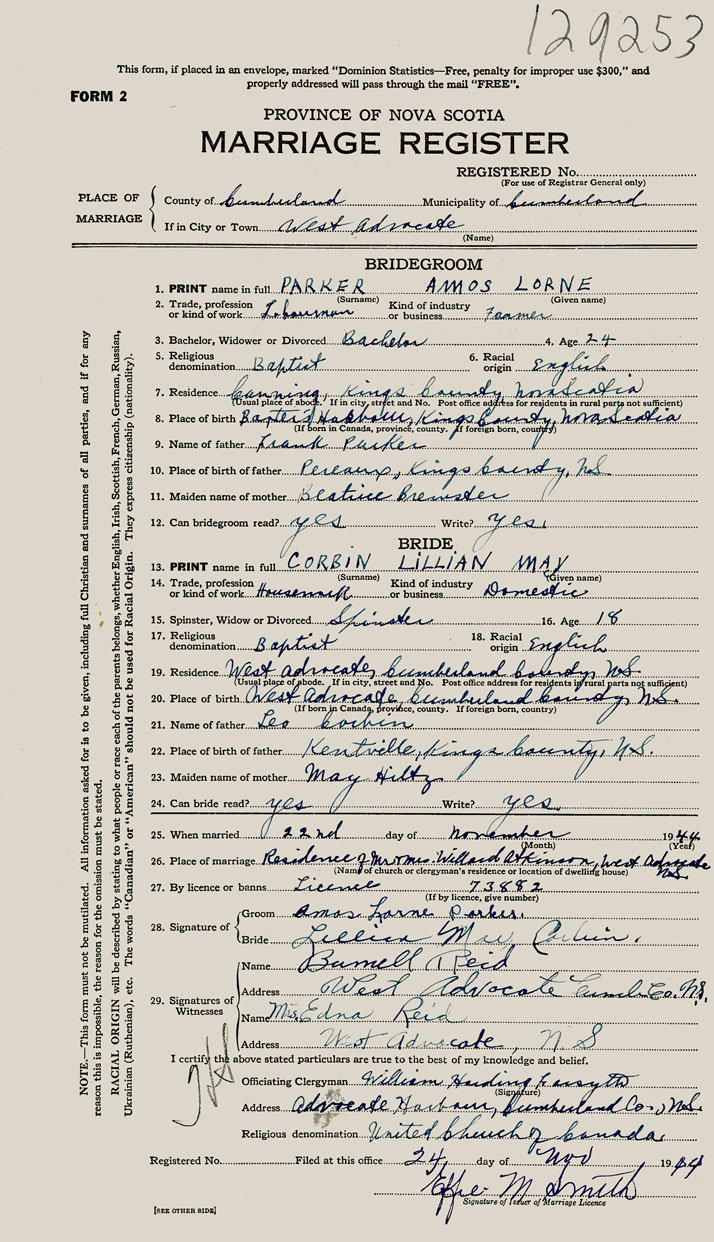 129253
This form, if placed in an envelope, marked “Dominion Statistics—Free, penalty for improper use $300,” and
properly addressed will pass through the mail “FREE”.
FORM 2
PROVINCE OF NOVA SCOTIA
MARRIAGE REGISTER
REGISTERED No.
(For use of Registrar General only)
PLACE OF MARRIAGE
County of Cumberland Municipality of Cumberland
If in City or Town West Advocate
(Name)
BRIDEGROOM
1. PRINT name in full PARKER AMOS LORNE
(Surname) (Given name)
2. Trade, profession or kind of work Labourman Kind of industry or business Farmer
3. Bachelor, Widower or Divorced Bachelor 4. Age 24
5. Religious denomination Baptist 6. Racial origin English
7. Residence Canning, Kings County Nova Scotia
(Usual place of abode. If in city, street and No. Post office address for residents in rural parts not sufficient)
8. Place of birth Baxter's Harbour, Kings County, Nova Scotia
(If born in Canada, province, county. If foreign born, county)
9. Name of father Frank Parker
10. Place of birth of father Pereaux, Kings County, N.S.
11. Maiden name of mother Beatrice Brewster
12. Can bridegroom read? yes Write? yes.
BRIDE
13. PRINT name in full CORBIN LILLIAN MAY
(Surname) (Given name)
14. Trade, profession or kind of work Housework Kind of industry or business Domestic
15. Spinster, Widow or Divorced Spinster 16. Age 18
17. Religious denomination Baptist 18. Racial origin English
19. Residence West Advocate, Cumberland County, N.S
(Usual place of abode. If in city, street and No. Post office address for residents in rural parts not sufficient)
20. Place of birth West Advocate, Cumberland County, N.S.
(If born in Canada, province, county. If foreign born, country)
21. Name of father Leo Corbin
22. Place of birth of father Kentville, Kings County, N.S.
23. Maiden name of mother May Hiltz
24. Can bride read? yes Write? yes
25. When married 22nd day of November 1944
(Month) (Year)
26. Place of marriage Residence of Mr & Mrs. Willard Atkinson, West Advocate N.S.
(Name of church or clergyman's residence or location of dwelling house)
27. By licence or banns Licence 73882
(If by licence, give number)
28. Signature of
Groom Amos Lorne Parker.
Bride Lillian May Corbin.
29. Signatures of Witnesses
Name Burnell Reid
Address West Advocate Cumb. Co. N.S.
Name Mrs. Edna Reid
Address West Advocate, N S
I certify the above stated particulars are true to the best of my knowledge and belief.
Officiating Clergyman William Harding Forsyth
(Signature)
Address Advocate Harbour, Cumberland Co., N.S.
Religious denomination United Church of Canada
Registered No. Filed at this office 24 day of Nov 1944
Effie M Smith
Signature of Issuer of Marriage Licence
[SEE OTHER SIDE]
NOTE.—This form must not be mutilated. All information asked for is to be given, including full Christian and surnames of all parties, and if for any
reason this is impossible, the reason for the omission must be stated.
RACIAL ORIGIN will be described by stating to what people or race each of the parents belongs, whether English, Irish, Scottish, French, German, Russian,
Ukrainian (Ruthenian), etc. The words “Canadian” or “American” should not be used for Racial Origin. They express citizenship (nationality).